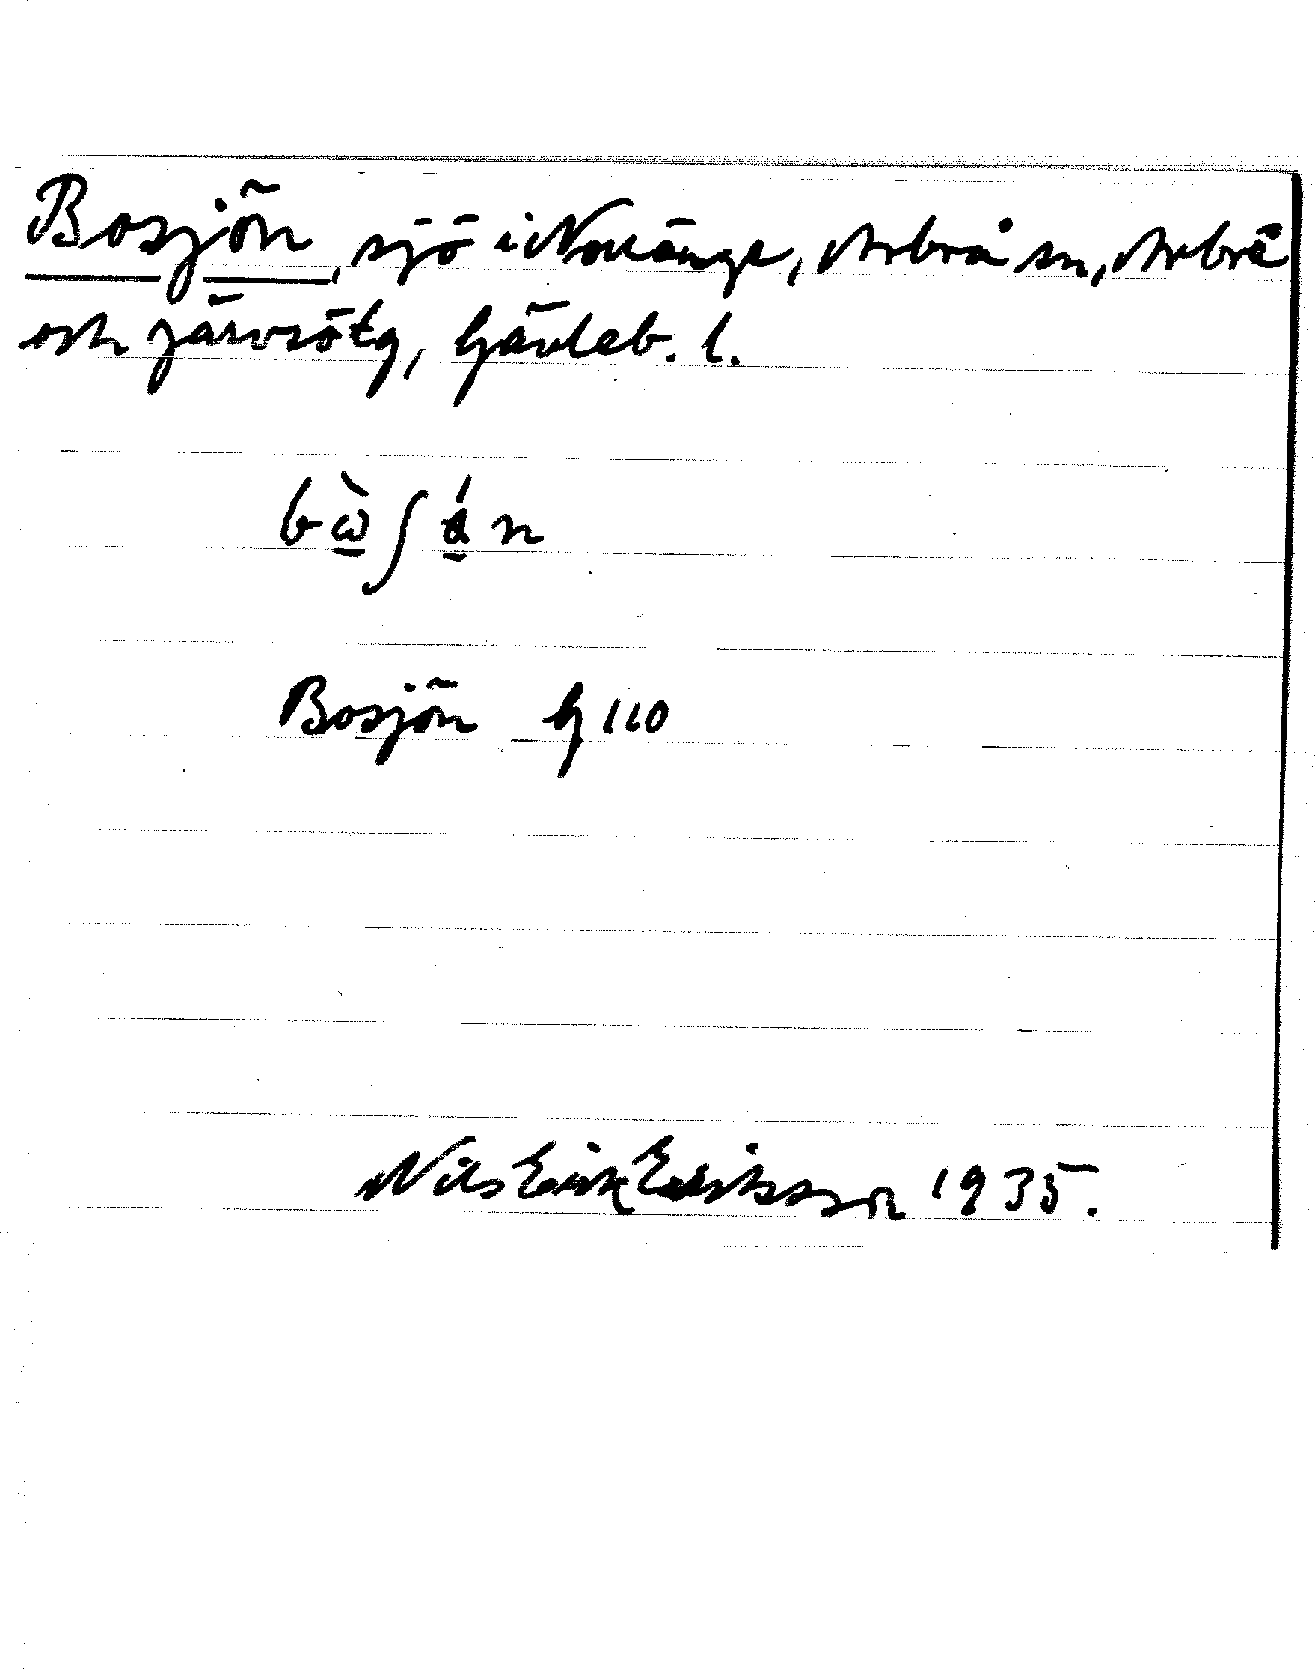 Bosjön, sjö i Norränge, Arbrå sn, Arbrå
och Järvsö tg, Gävleb. l.
bὼ̲ʃά̲n
Bosjön G 110
Nils Erik Eriksson 1935.